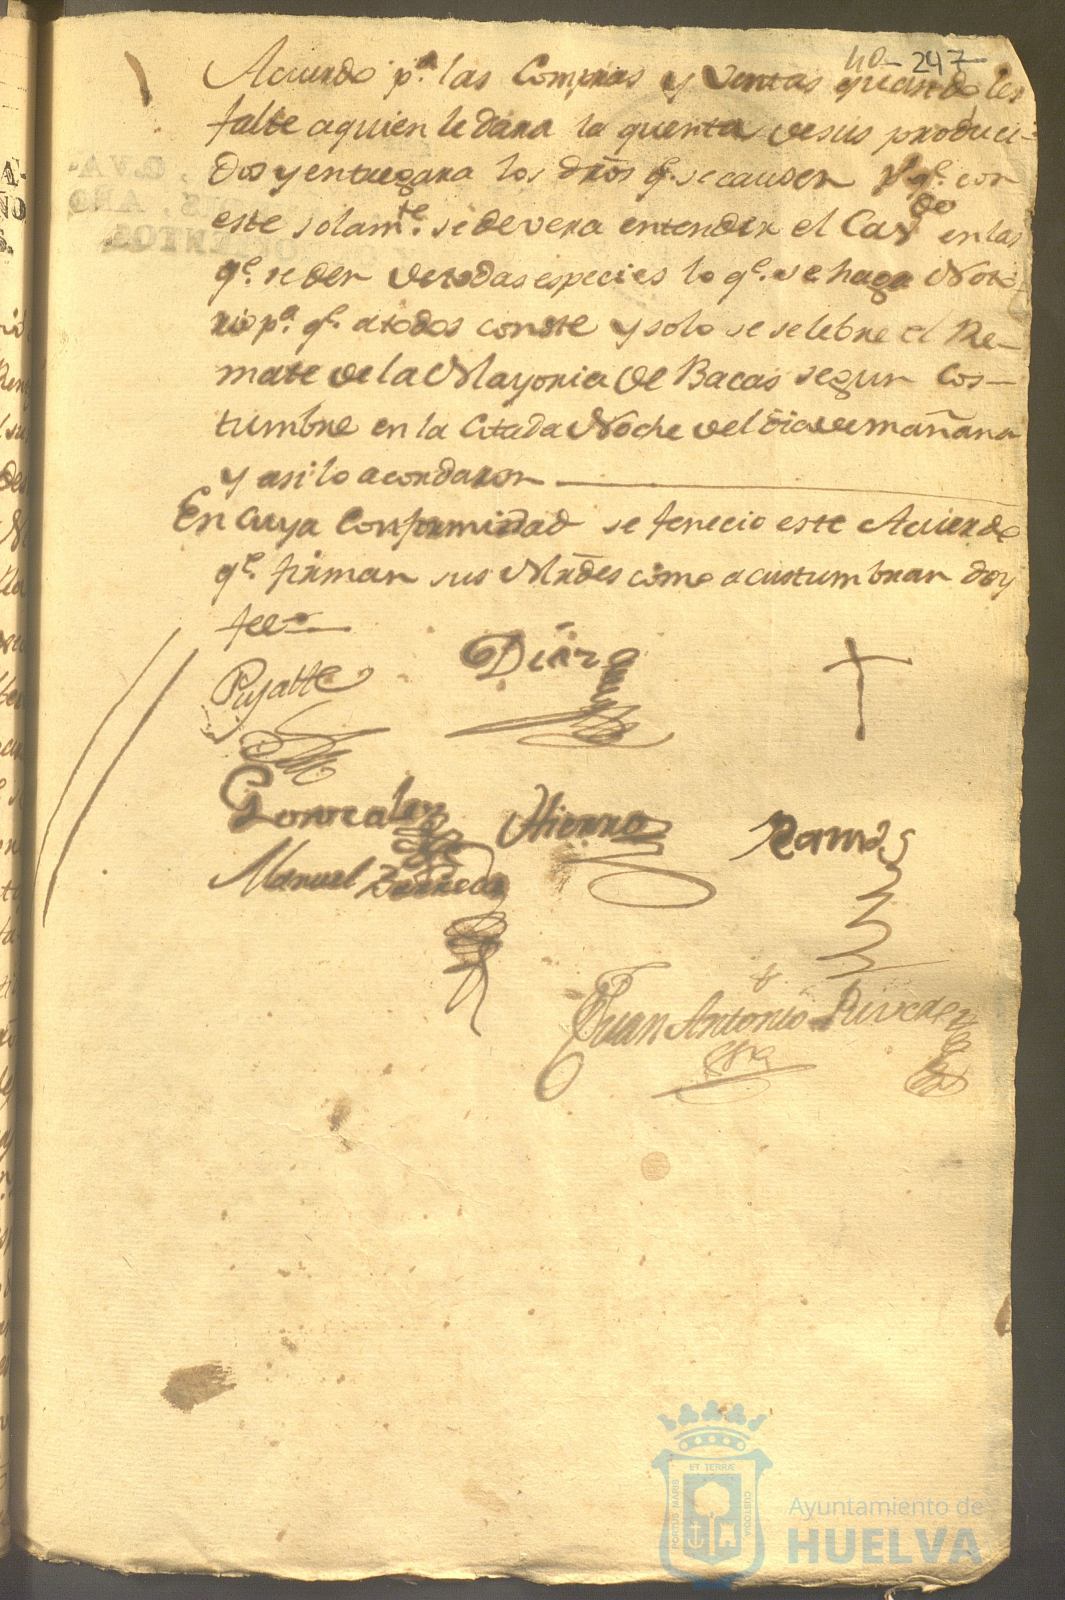 40 - 247
Acuerdo p.a las Compras y Ventas quando les
falte a quien le dara la quenta de sus produci-
dos y entregara los dros q.e se causen p.r q.e con
este solam.te se devera entender el Cav.do en las
q.e se den de todas especies lo q.e se haga Noto-
rio p.a q.e a todos conste y solo se selebre el Re-
mate de la Mayoria de Bacas segun Cos-
tumbre en la Citada Noche del dia de mañana
y asi lo acordaron
En cuya Conformidad se fenecio este Acuerdo
q.e firman sus Mrdes como acustumbran doy
fee
Pujatte Diaz
Gonzalez Hierro Ramos
Manuel Barreda
Juan Antonio
ET TERRÆ
PORTUS MARIS
CUSTODIA
Ayuntamiento de
HUELVA